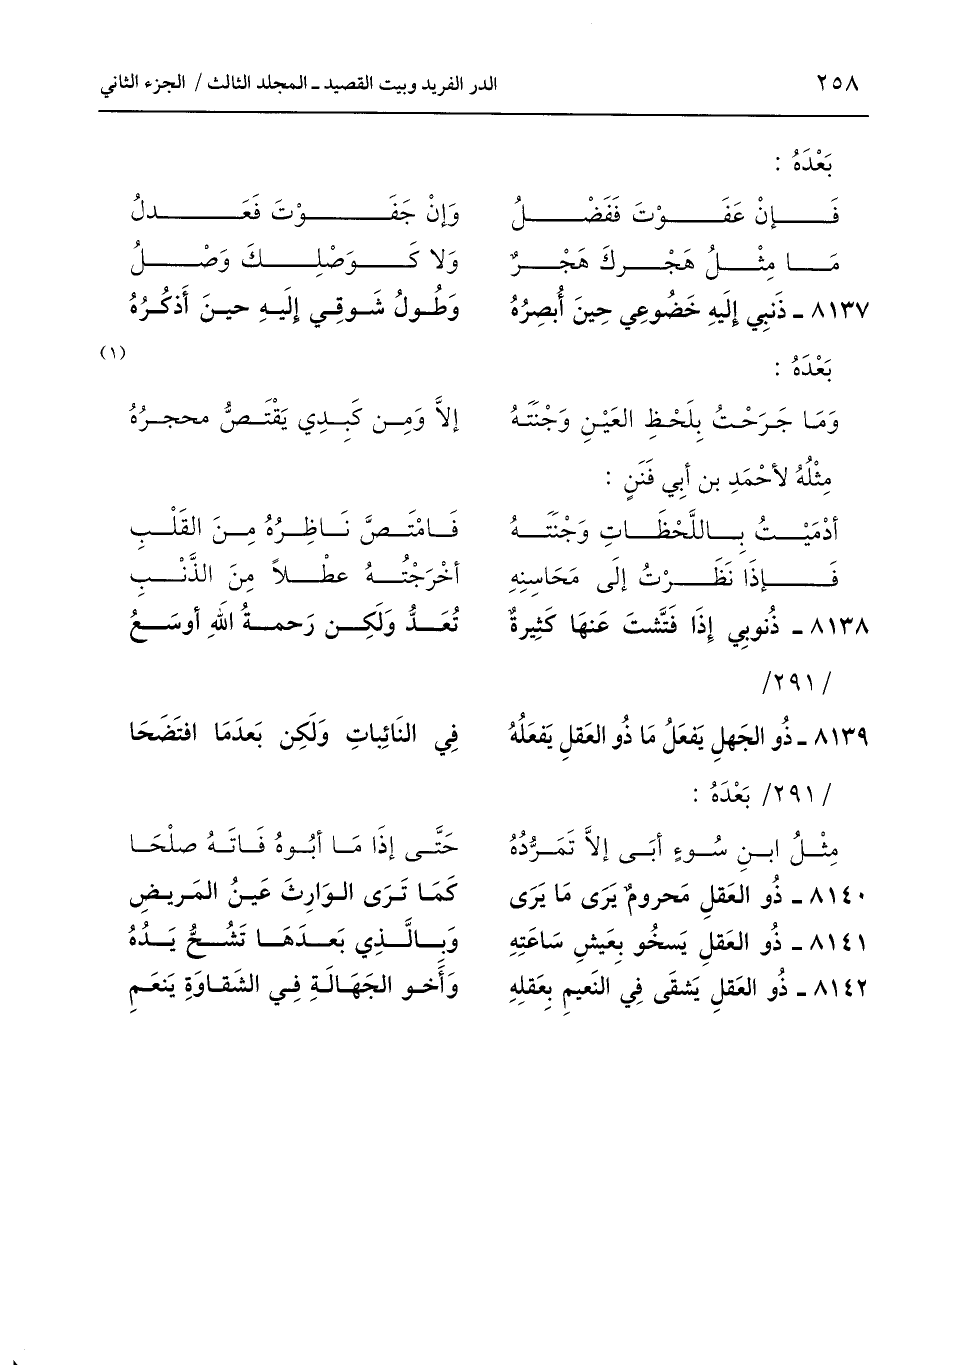 ٢٥٨ الدر الفريد وبيت القصيد ـ المجلد الثالث / الجزء الثاني
بَعْدَهُ :
فَإِنْ عَفَوْتَ فَفَضْلُ وَإِنْ جَفَوْتَ فَعَدلُ
مَا مِثْلُ هَجْرِكَ هَجْرٌ وَلا كَوَصْلِكَ وَصْلُ
٨١٣٧ ـ ذَنبِي إِلَيهِ خَضُوعِي حِينَ أُبصِرُهُ وَطُولُ شَوقِي إِلَيهِ حينَ أَذكُرُهُ
(١)
بَعْدَهُ :
وَمَا جَرَحْتُ بِلَحْظِ العَيْنِ وَجْنَتَهُ إلاَّ وَمِن كَبِدِي يَقْتَصُّ محجرُهُ
مِثْلُهُ لأحْمَدِ بن أبي فَنَنٍ :
أدْمَيْتُ بِاللَّحْظَاتِ وَجْنَتَهُ فَامْتَصَّ نَاظِرُهُ مِنَ القَلْبِ
فَإِذَا نَظَرْتُ إلَى مَحَاسِنِهِ أخْرَجْتُهُ عطْلاً مِنَ الذَّنْبِ
٨١٣٨ ـ ذُنوبِي إِذَا فَتَّشتَ عَنهَا كَثِيرةٌ تُعَدُّ وَلَكِن رَحمةُ اللهِ أوسَعُ
/٢٩١/
٨١٣٩ ـ ذُو الجَهلِ يَفعَلُ مَا ذُو العَقلِ يَفعَلُهُ فِي النَائِباتِ وَلَكِن بَعدَمَا افتَضَحَا
/٢٩١/ بَعْدَهُ :
مِثْلُ ابنِ سُوءٍ أبَى إلاَّ تَمَرُّدُهُ حَتَّى إذَا مَا أبُوهُ فَاتَهُ صلْحَا
٨١٤٠ ـ ذُو العَقلِ مَحرومٌ يَرَى مَا يَرَى كَمَا تَرَى الوَارِثَ عَينُ المَريضِ
٨١٤١ ـ ذُو العَقلِ يَسخُو بِعَيشِ سَاعَتِهِ وَبِالَّذِي بَعدَهَا تَشُحُّ يَدُهُ
٨١٤٢ ـ ذُو العَقلِ يَشقَى فِي النَعيمِ بِعَقلِهِ وَأَخو الجَهَالَةِ فِي الشَقاوَةِ يَنعَمِ